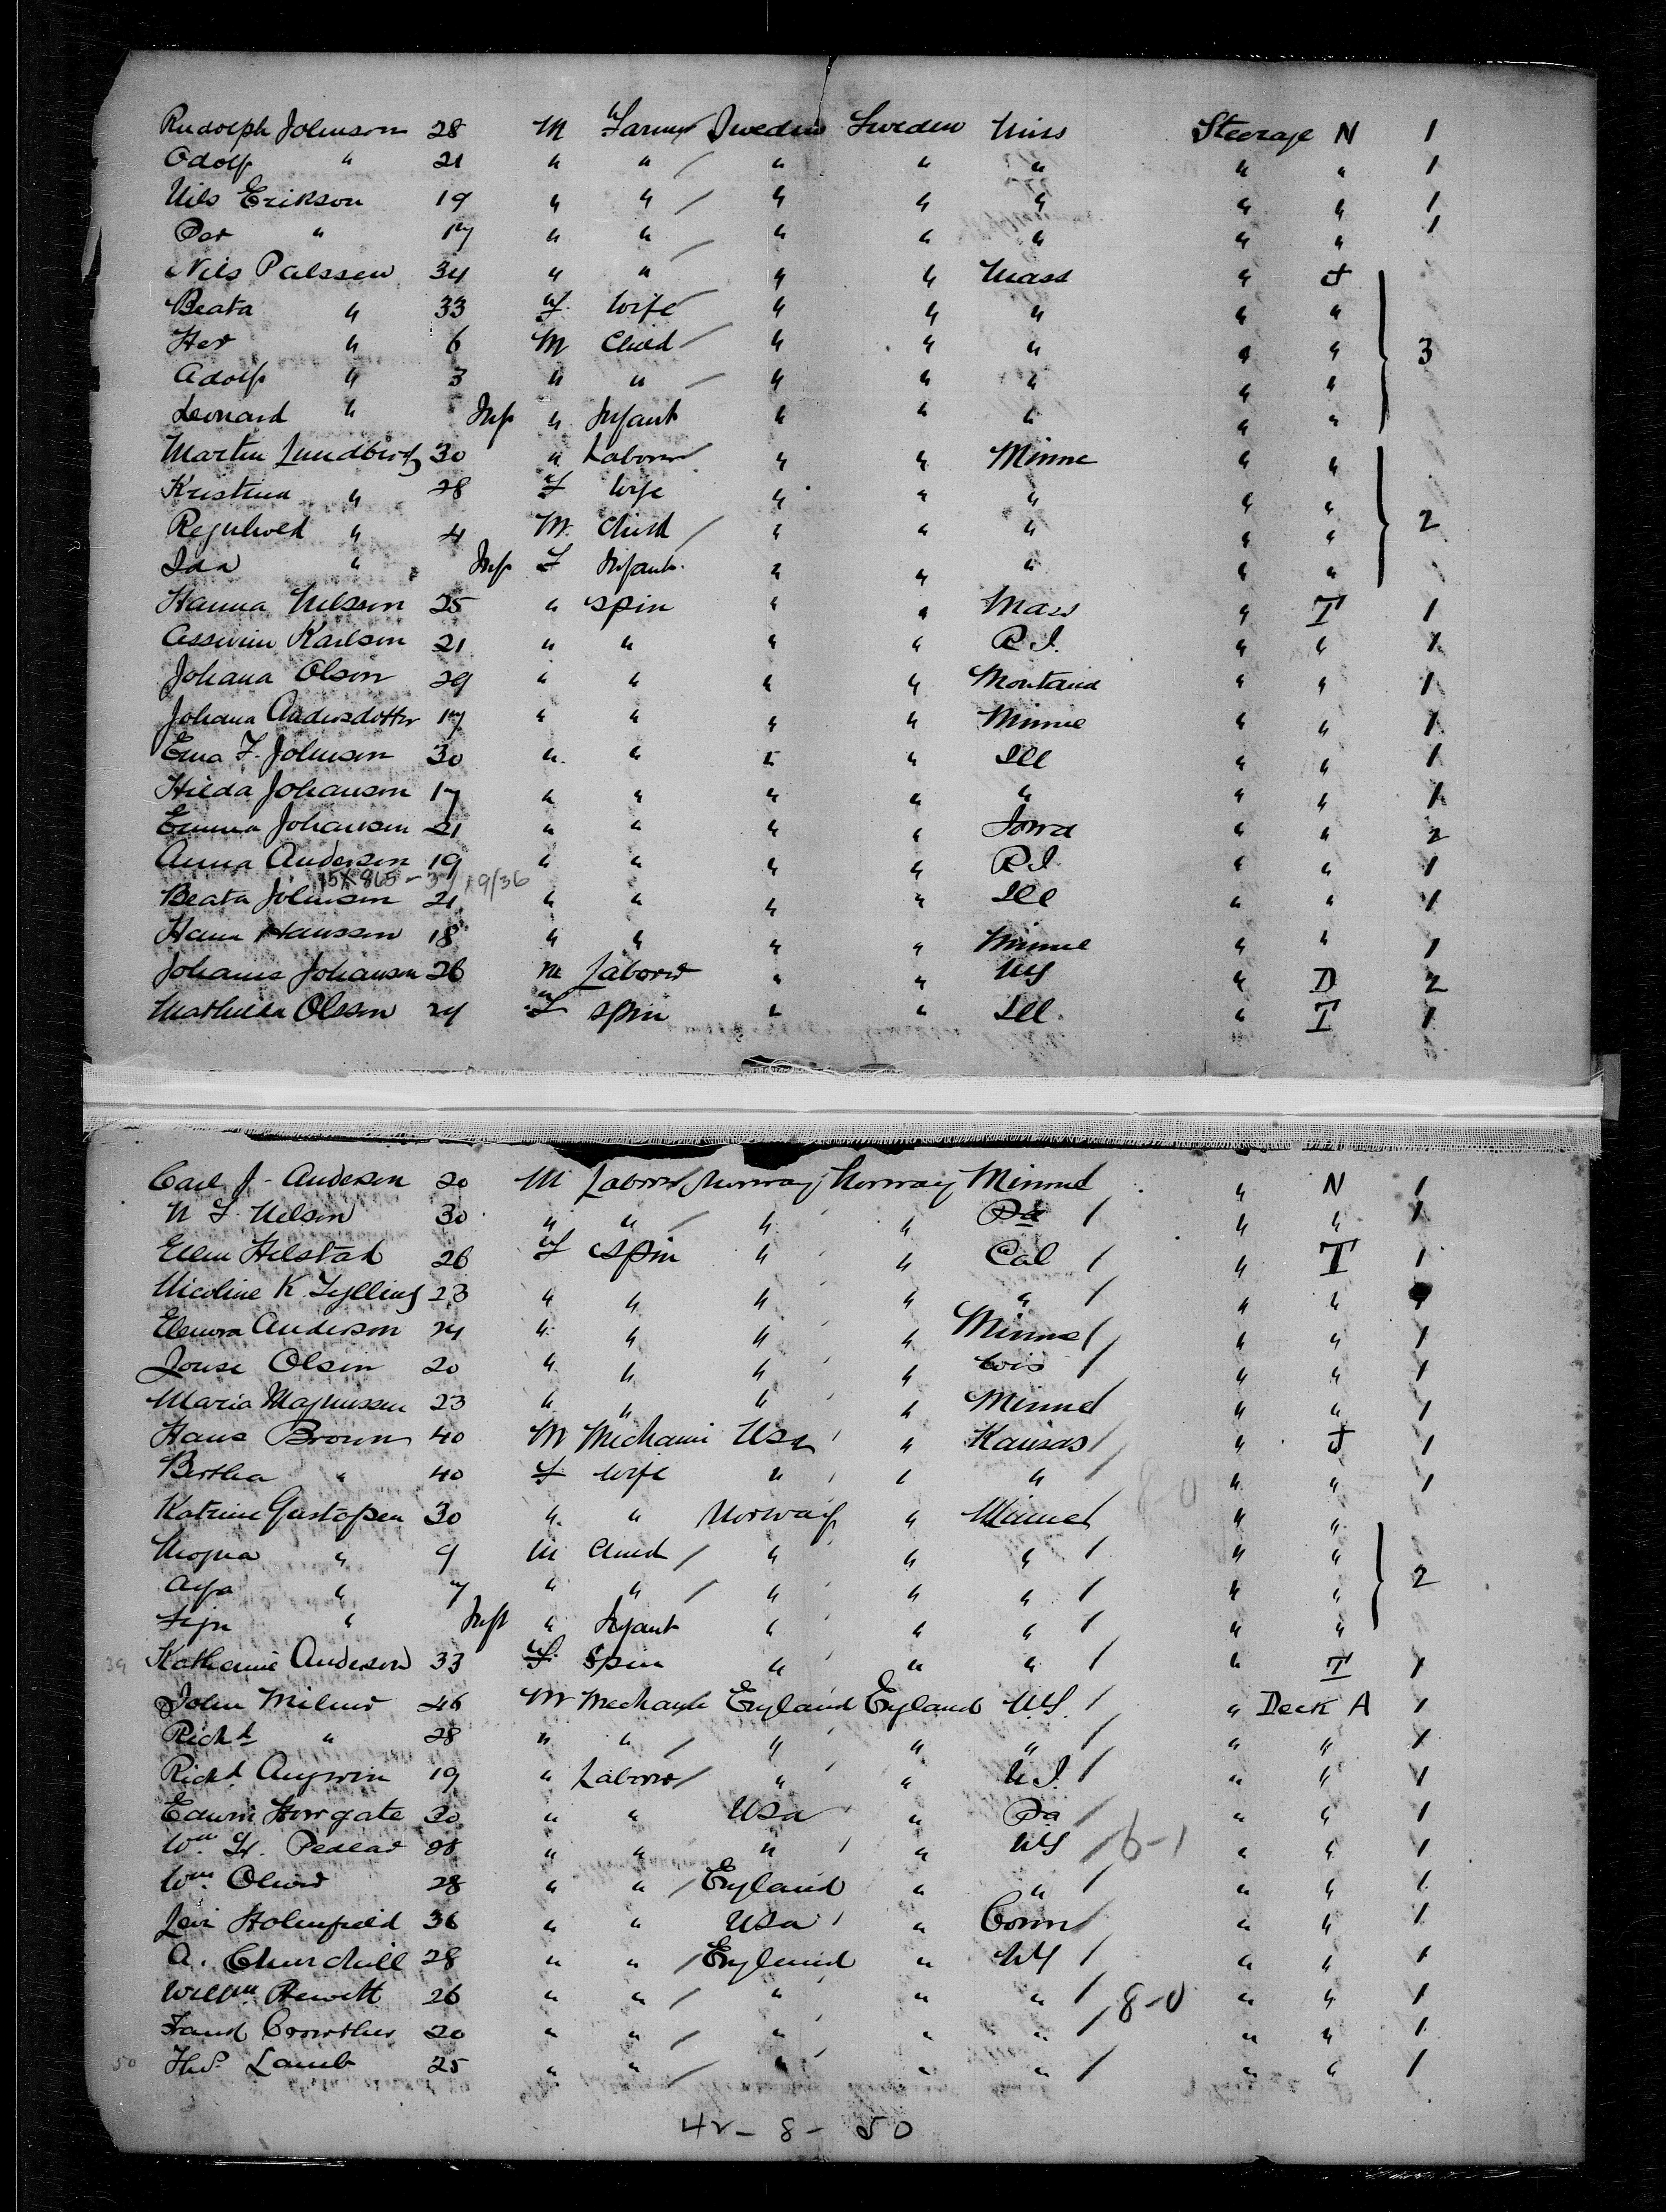 Rudolph Johnson 28 M Farmer Sweden Sweden Miss Steerage N 1
Adolf " 21 " " " " " " " 1
Nils Erikson 19 " " " " " " " 1
Per " 17 " " " " " " " 1
Nils Palssen 34 " " " " Mass " J
Beata " 33 F Wife " " " " "
Her " 6 M Child " " " " " 3
Adolf " 3 " " " " " " "
Leonard " Inf " Infant " " " " "
Martin Lundberg 30 " Laborer " " Minne " "
Kristina " 28 F Wife " " " " "
" 4 M Child " " " " " 2
Ida " Inf F Infant " " " " "
Hanna Nelsson 25 " Spin " " Mass " T 1
Karlson 21 " " " " R.I. " " 1
Johana Olson 29 " " " " Montana " " 1
Johana Andersdotter 17 " " " " Minne " " 1
Erna F. Johnson 30 " " " " Ill " " 1
Hilda Johanson 17 " " " " " " " 1
Emma Johanson 21 " " " " Iowa " " 2
Anna Anderson 19 " " " " R.I " " 1
15X865 - 3/19/36
Beata Johnson 21 " " " " Ill " " 1
Hana Hansson 18 " " " " Minne " " 1
Johanis Johanson 26 M Laborer " " NY " D 2
Mathilda Olsson 24 F Spin " " Ill " T 1
Carl J. Anderson 20 M Laborer Norway Norway Minne " N 1
N F Nelson 30 " " " " Pa " " 1
Ellen Helstad 26 F Spin " " Cal " T 1
Nicoline K. Tylling 23 " " " " " " "
Elenora Anderson 24 " " " " Minne " " 1
Louse Olsin 20 " " " " Wis " " 1
Maria Magnussen 23 " " " " Minne " " 1
Hans Brown 40 M Mechanic USA " Kansas " J 1
Bertha " 40 F Wife " " " " " 1
8-0
Katrine Gustafsen 30 " " Norway " Minne " "
" 9 M Child " " " " "
" 7 " " " " " " " 2
" Inf " Infant " " " " "
39 Katharine Anderson 33 F Spin " " " " T 1
John Milner 46 M Mechanic England England N.Y. " Deck A 1
Richd " 28 " " " " " " " 1
Richd Angwin 19 " Laborer " " N.J. " " 1
Edwin Howgate 30 " " USA " Pa " " 1
Wm H. Pedlar 28 " " " " NY 6-1 " " 1
Wm Oliver 28 " " England " " " " 1
Levi Holmfield 36 " " USA " Conn " " 1
A. Churchill 28 " " England " NY " " 1
Willm Hewitt 26 " " " " " 8-0 " " 1
Frank Crowther 20 " " " " " " " 1
50 Thos. Lamb 25 " " " " " " " 1
42 - 8 - 50